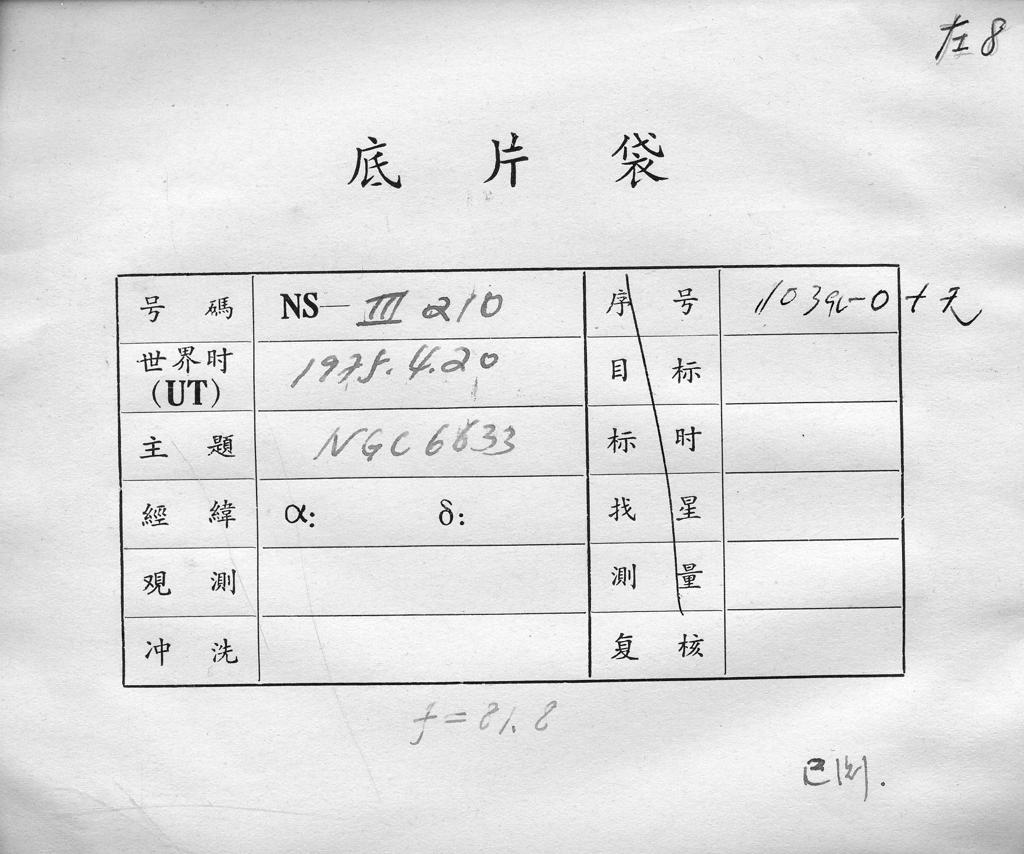 左8
底片袋
号碼 NS— III 210 序号 103aC-O+天
世界时(UT) 1975.4.20 目标
主題 NGC 6633 标时
經緯 α: δ: 找星
观測 測量
冲洗 复核
f=81.8
已测.